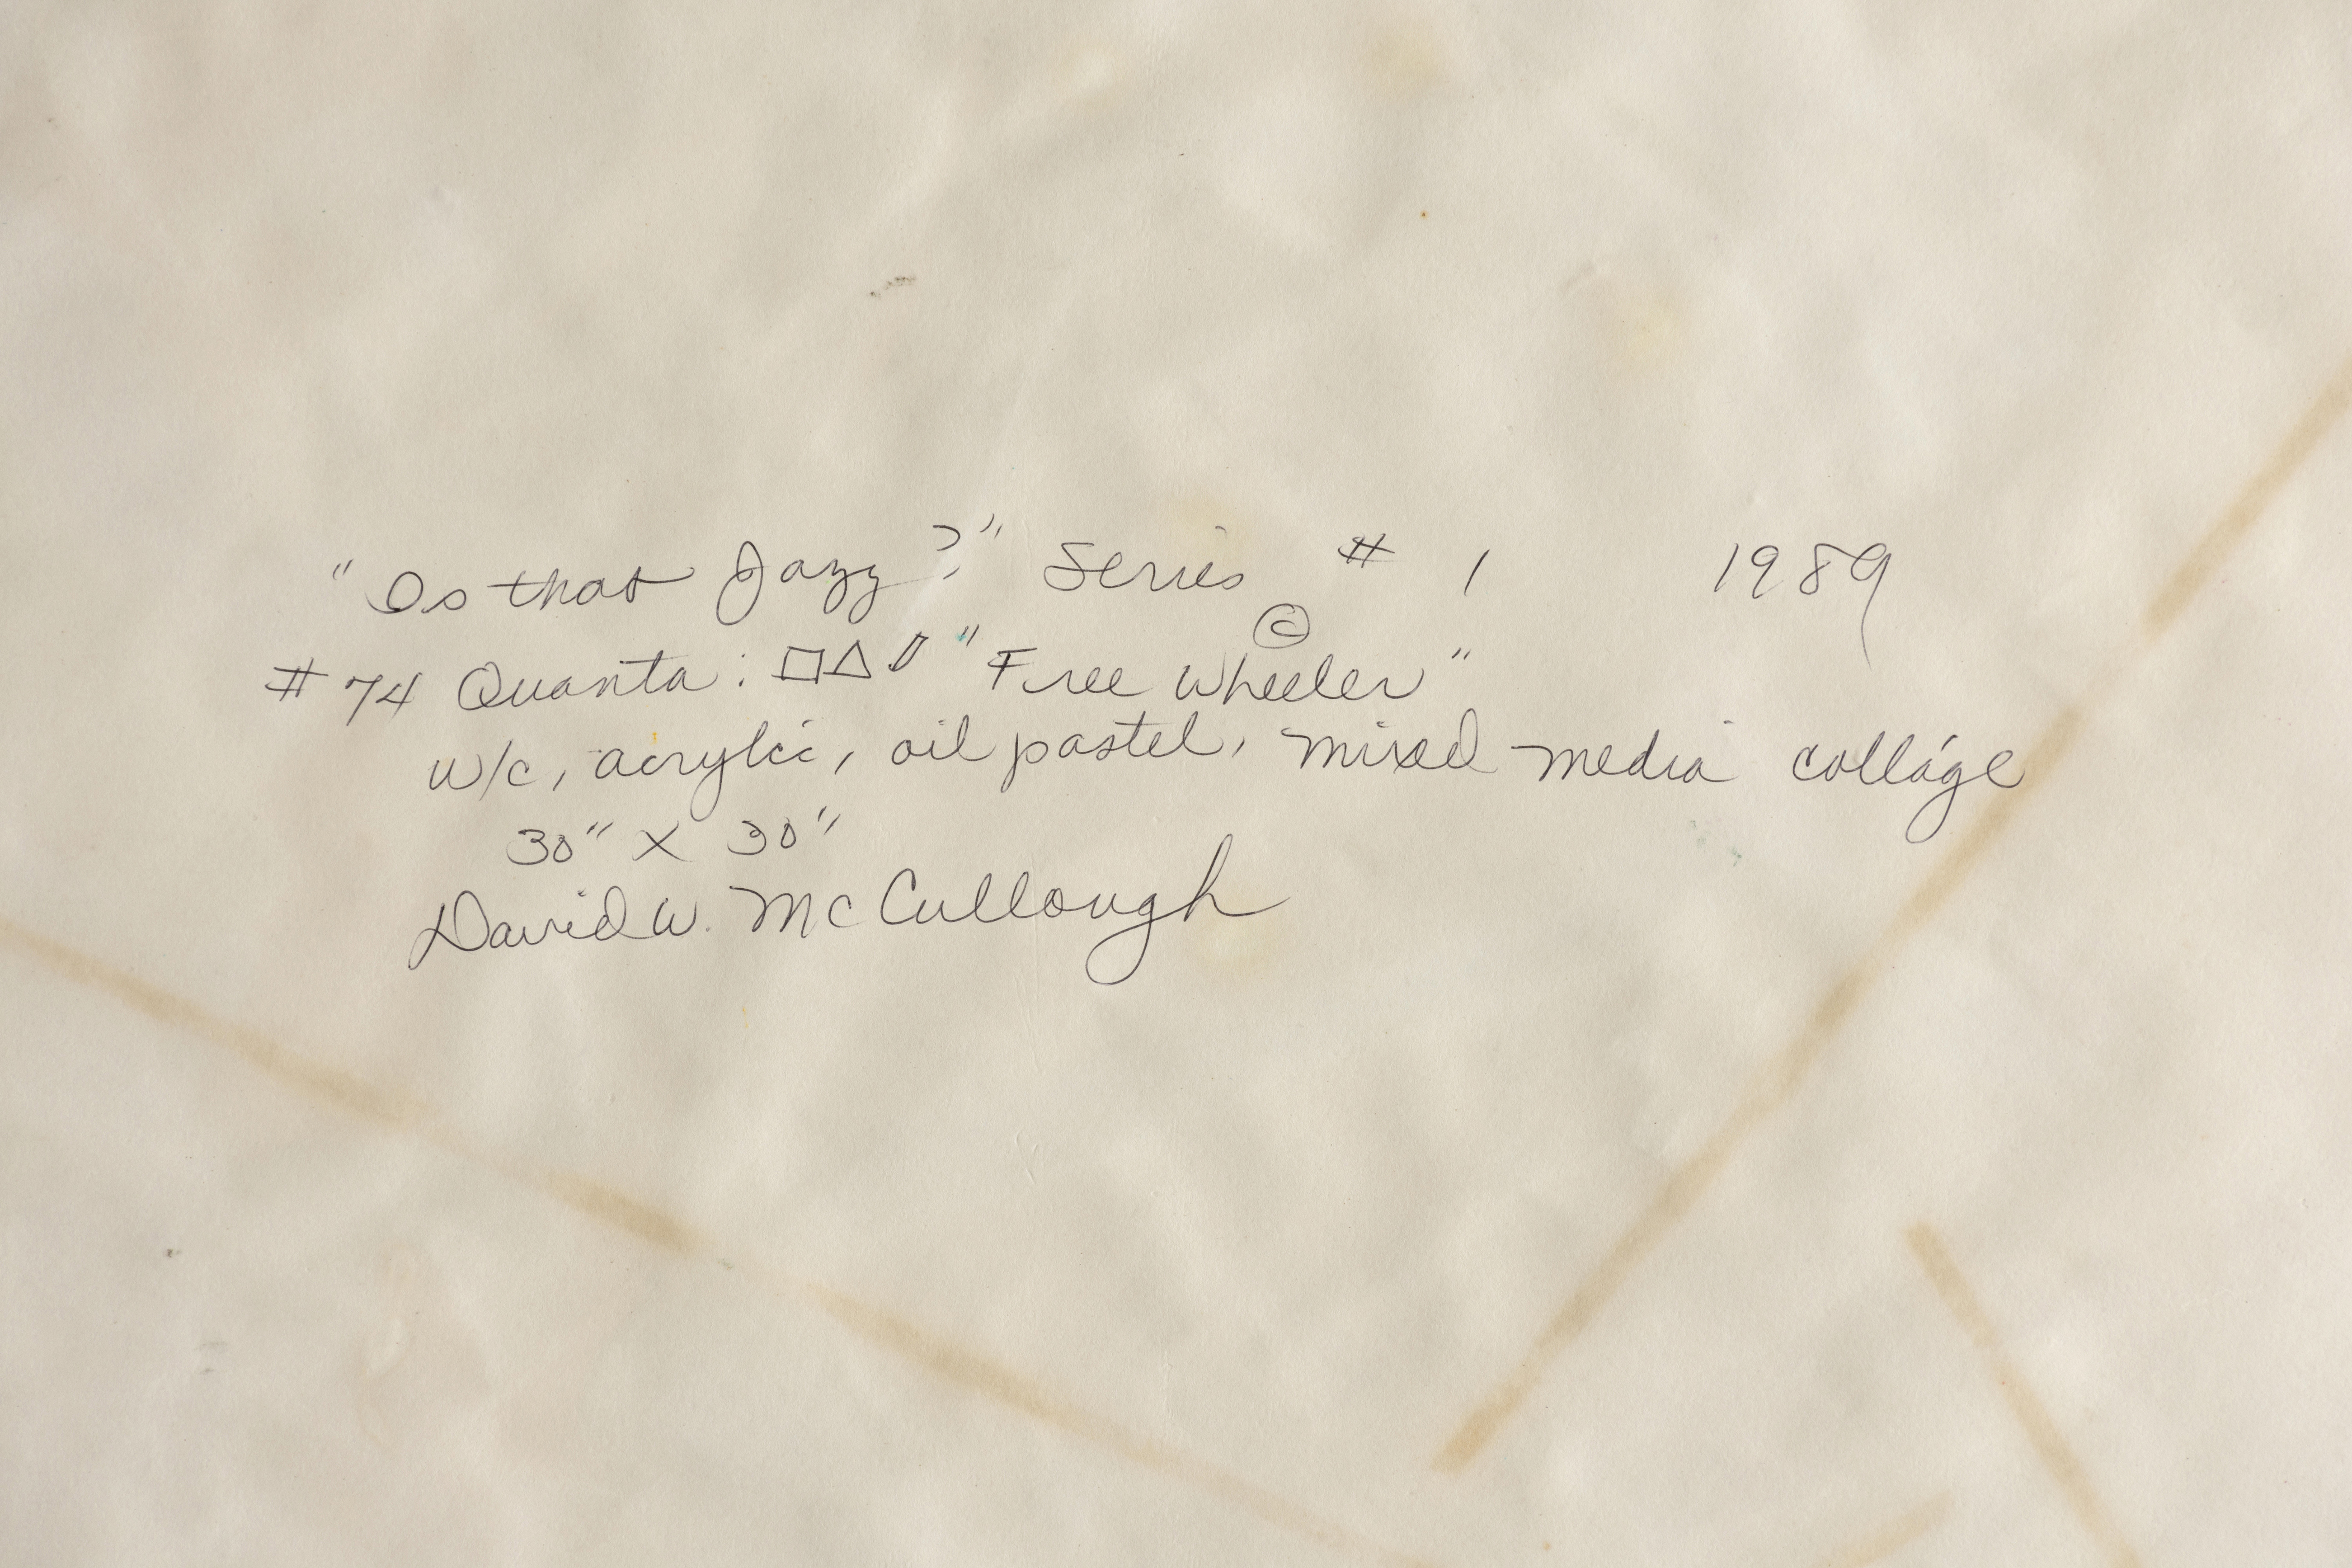 "Is that Jazz?" Series # 1 1989
#74 Quanta: □△▱ "Free Wheeler" ©
w/c, acrylic, oil pastel, mixed media colláge
30" X 30"
David W. McCullough